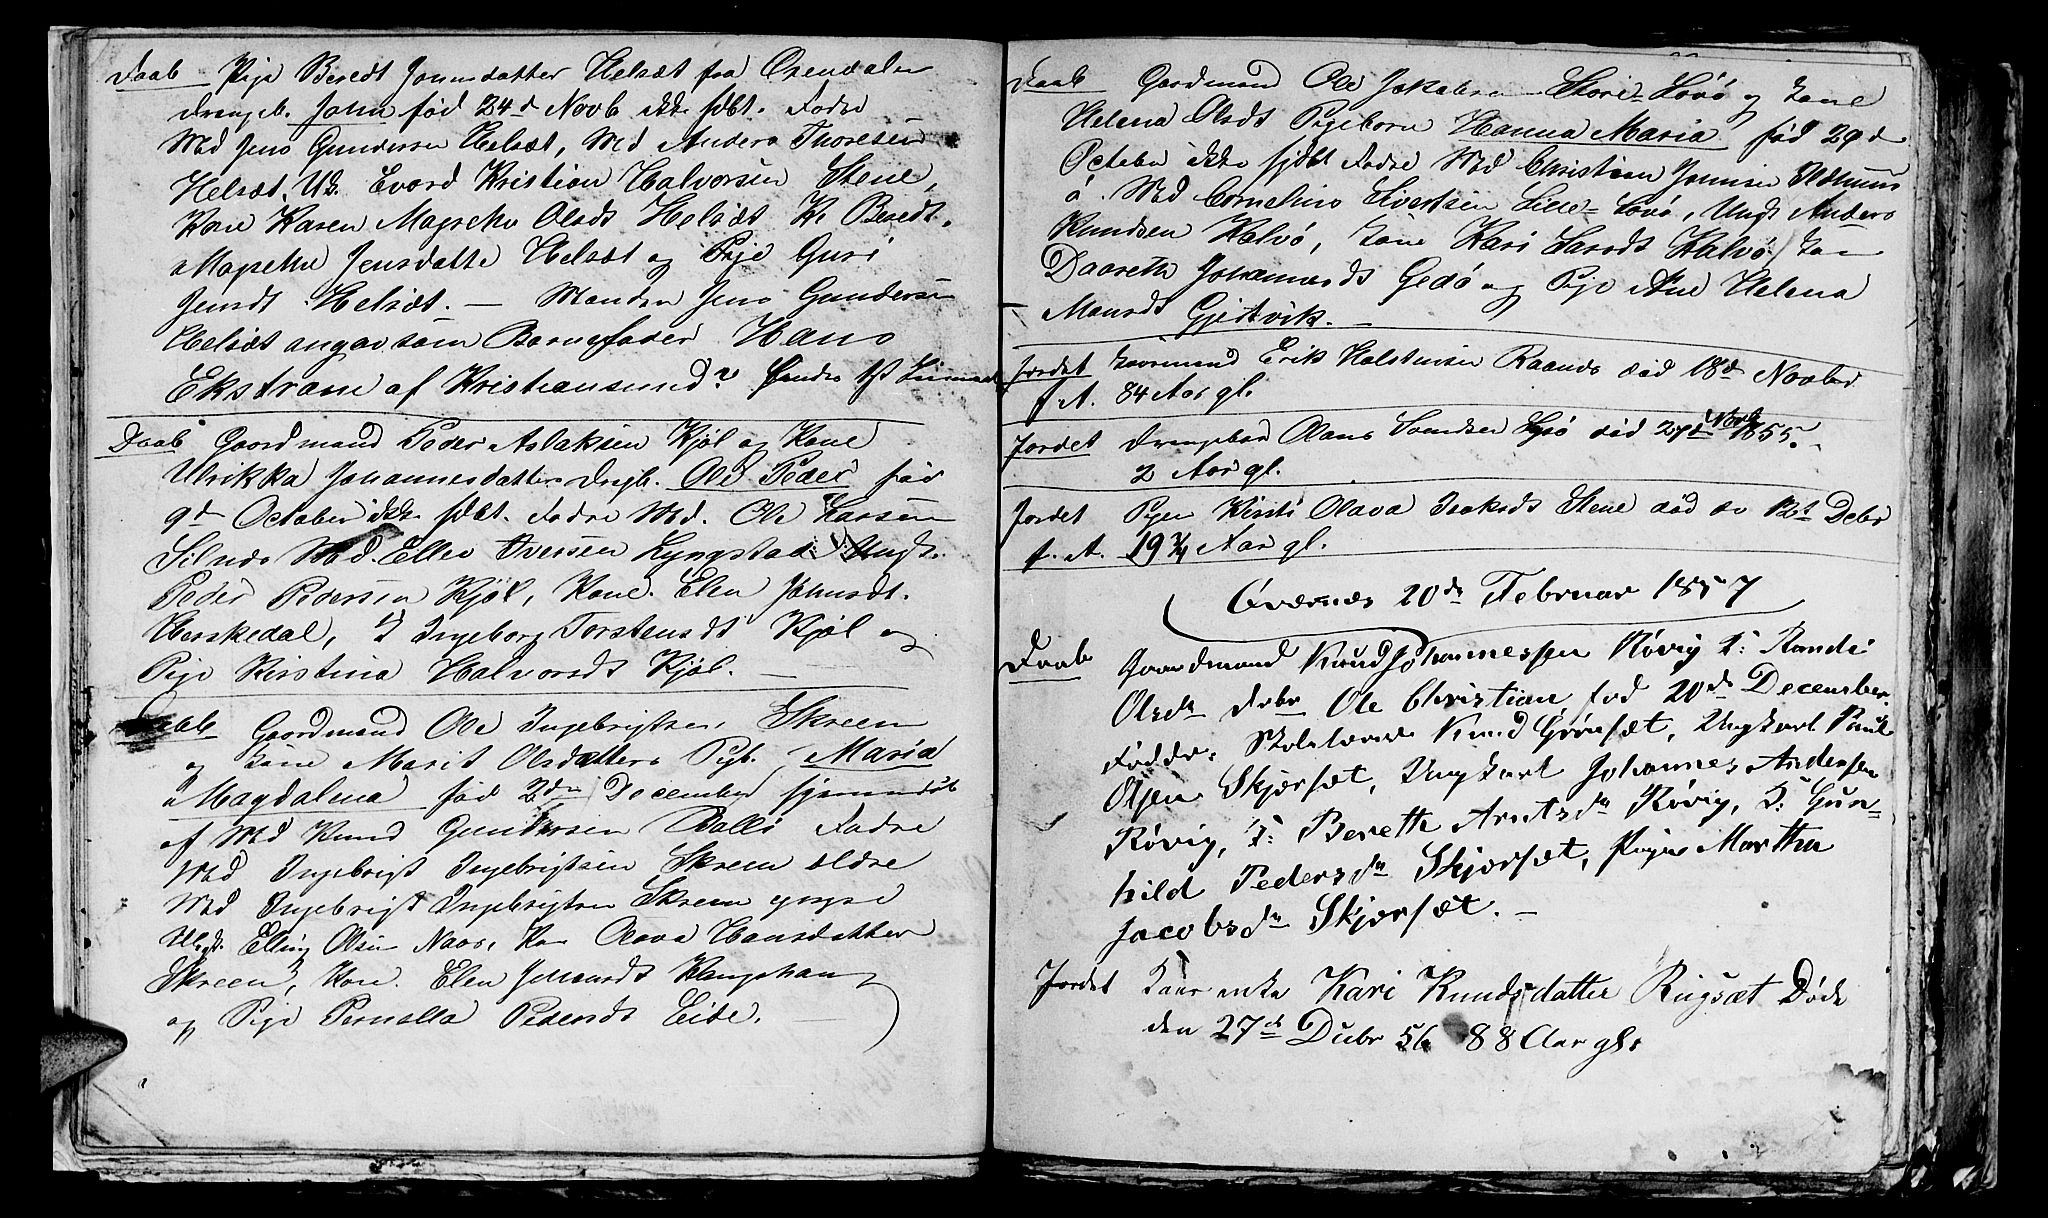 Daab Pige Beredt Jonsdatter Helsæt fra Osendalen
Drengeb. John fød 24d Novb ikke hdbt. Fadre
Md Jens Gundersen Helsæt, Md Anders Thoresen
Helsæt, Uk. Evard Kristian Halvorsen Stene,
Kone Karen Magrethe Olsdt Helsæt K. Beredt
Magrethe Jensdatter Helsæt og Pige Guri
Jensdt Helsæt. — Manden Jens Gundersen
Helsæt angav som Barnefader Hans
Ekstrøm af Kristiansund?
Daab Gaardmand Peder Aslaksen Kjøl og Kone
Ulrikka Johannesdatters Drgb. Ole Peder fød
9d October ikke hdbt. Fadre Md. Ole Larsen
Silnes Md. Ellev Iversen Lyngstad, Ungk.
Peder Pedersen Kjøl, Kone Elen Johnsdt.
Herskedal, K Ingeborg Torstensdt Kjøl og
Pige Kristina Halvorsdt Kjøl. —
Daab Gaardmand Ole Ingebrigtsen Skreem
og Kone Marit Olsdatters Pigb. Maria
Magdalena fød 2den December hjemmedøbt
af Md Knud Gundersen Bolli Fadre
Md Ingebrigt Ingebrigtsen Skreem eldre
Md Ingebrigt Ingebrigtsen Skreem yngre
Ungk. Elling Olsen Naas, Kone Olava Hansdatter
Skreem, Kone Elen
og Pige Pernella Pedersdt Eide. —
Daab Gaardmand Ole Jakobsen Store-Lovø og Kone
Helena Olsdt Pigebarn Hanna Maria fød 29d
October ikke hjdbt Fadre Md Christian Johnsen
Md Cornelius Sivertsen Lille-Lovø, Ungk Anders
Knudsen Kalvø, Kone Kari Larsdt Kalvø, Kone
Daareth Johannesdt Gedø og Pige Ane Helena
Monsdt Gjeitvik. —
Jordet Gaardmand Erik Halstensen Raands død 18d Novbr
f. A. 84 Aar gl.
Jordet Drengebar Olaus død 27d Novb 1855.
2 Aar gl.
Jordet Pigen Kirsti Olava Isaksdt Stene død d. 12t Debr
f. A. 19 3/4 Aar gl.
Øvernes 20de Februar 1857
Daab Gaardmand Knud Johannessen Røvig K: Randi
Olsdr Drbr Ole Christian, fød 20de December.
Faddre: Skolelærer Knud Gørsæt, Ungkarl Paul
Olsen Skjørsæt, Ungkarl Johannes Andersen
Røvig, K: Berette Arntsdr Røvig, K: Gun-
hild Pedersdr Skjørsæt, Pigen Martha
Jacobsdr Skjørsæt. —
Jordet Kaar enke Kari Knudsdatter Rugsæt Døde
den 27de Debr 56 88 Aar gl.